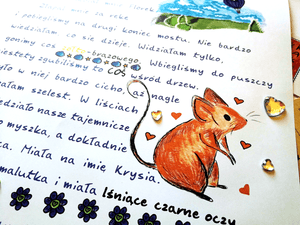 za rękę
i pobiegłam na drugi koniec mostu. Nie bardzo
wiedziałam co się dzieje. Widziałam tylko,
gonimy coś brązowego. Wbiegliśmy do puszczy
niestety zgubiliśmy to coś wśród drzew.
yło w niej bardzo cicho, aż nagle
załam szelest. W liściach
edziało nasze tajemnicze
o myszka, a dokładnie
ca. Miała na imię Krysia.
malutka i miała lśniące czarne oczy